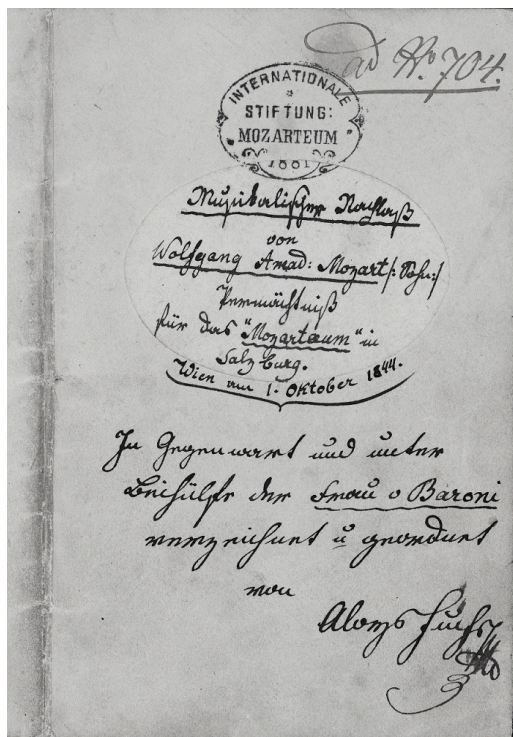 ad No. 704.
INTERNATIONALE
STIFTUNG:
MOZARTEUM
1881
Musikalischer Nachlaß
von
Wolfgang Amad: Mozart /: Sohn :/
Vermächtniß
für das "Mozartaeum" in
Salzburg.
Wien am 1. Oktober 1844.
In Gegenwart und unter
Beihülfe der Frau v Baroni
verzeichnet u geordnet
von
Aloys Fuchs